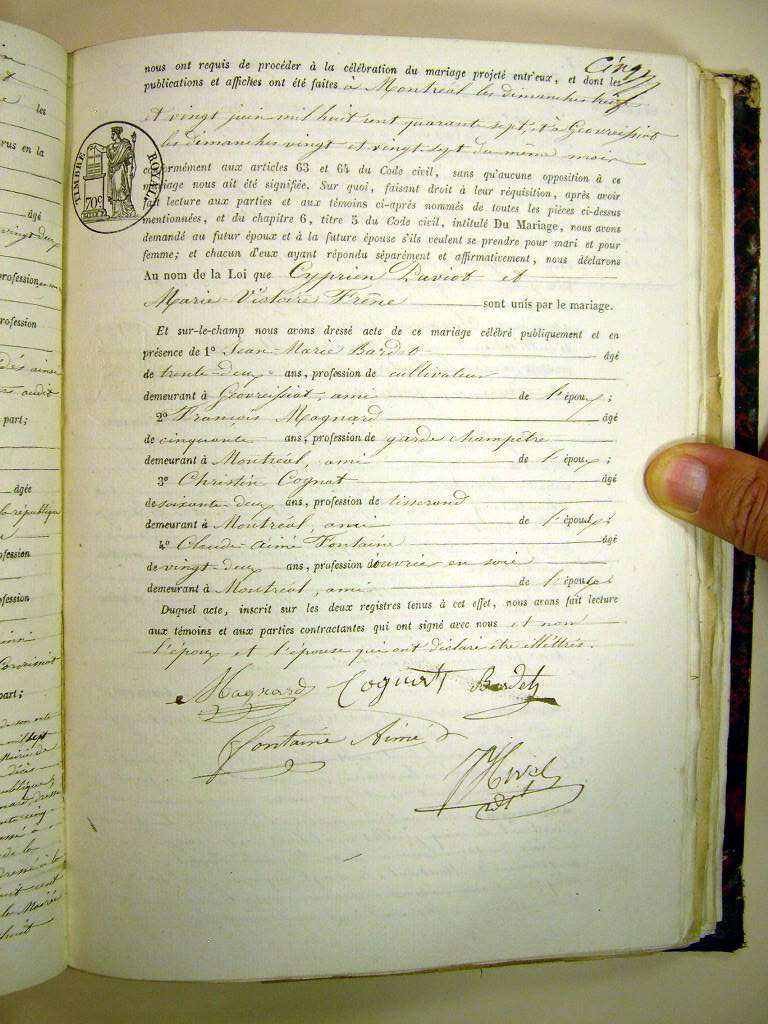 Cinq
nous ont requis de procéder à la célébration du mariage projeté entr'eux, et dont les
publications et affiches ont été faites à Montréal les dimanches
et vingt juin mil huit cent quarante sept, et à Geovreissiat
les dimanches vingt et vingt sept du même mois
conformément aux articles 63 et 64 du Code civil, sans qu'aucune opposition à ce
mariage nous ait été signifiée. Sur quoi, faisant droit à leur réquisition, après avoir
fait lecture aux parties et aux témoins ci-après nommés de toutes les pièces ci-dessus
mentionnées, et du chapitre 6, titre 5 du Code civil, intitulé Du Mariage, nous avons
demandé au futur époux et à la future épouse s'ils veulent se prendre pour mari et pour
femme; et chacun d'eux ayant répondu séparément et affirmativement, nous déclarons
Au nom de la Loi que Cyprien Daviot et
Marie-Victoire Frêne sont unis par le mariage.
Et sur-le-champ nous avons dressé acte de ce mariage célébré publiquement et en
présence de 1° Jean-Marie Bardet âgé
de trente-deux ans, profession de cultivateur
demeurant à Geovreissiat, ami de l'époux;
2° François Magnard âgé
de cinquante ans, profession de garde champêtre
demeurant à Montréal, ami de l'époux;
3° Christin Cognat âgé
de soixante-deux ans, profession de tisserand
demeurant à Montréal, ami de l'époux;
4° Claude-Aimé Fontaine âgé
de vingt-deux ans, profession d'ouvrier en soie
demeurant à Montréal, ami de l'époux
Duquel acte, inscrit sur les deux registres tenus à cet effet, nous avons fait lecture
aux témoins et aux parties contractantes qui ont signé avec nous et non
l'époux et l'épouse qui ont déclaré être illettrés.
Magnard Cognat Bardet
Fontaine Aimé
adjt
TIMBRE ROYAL
70c
les
rus en la
âgé
profession
rofession
part;
âgée
la république
ofession
ofession
part;